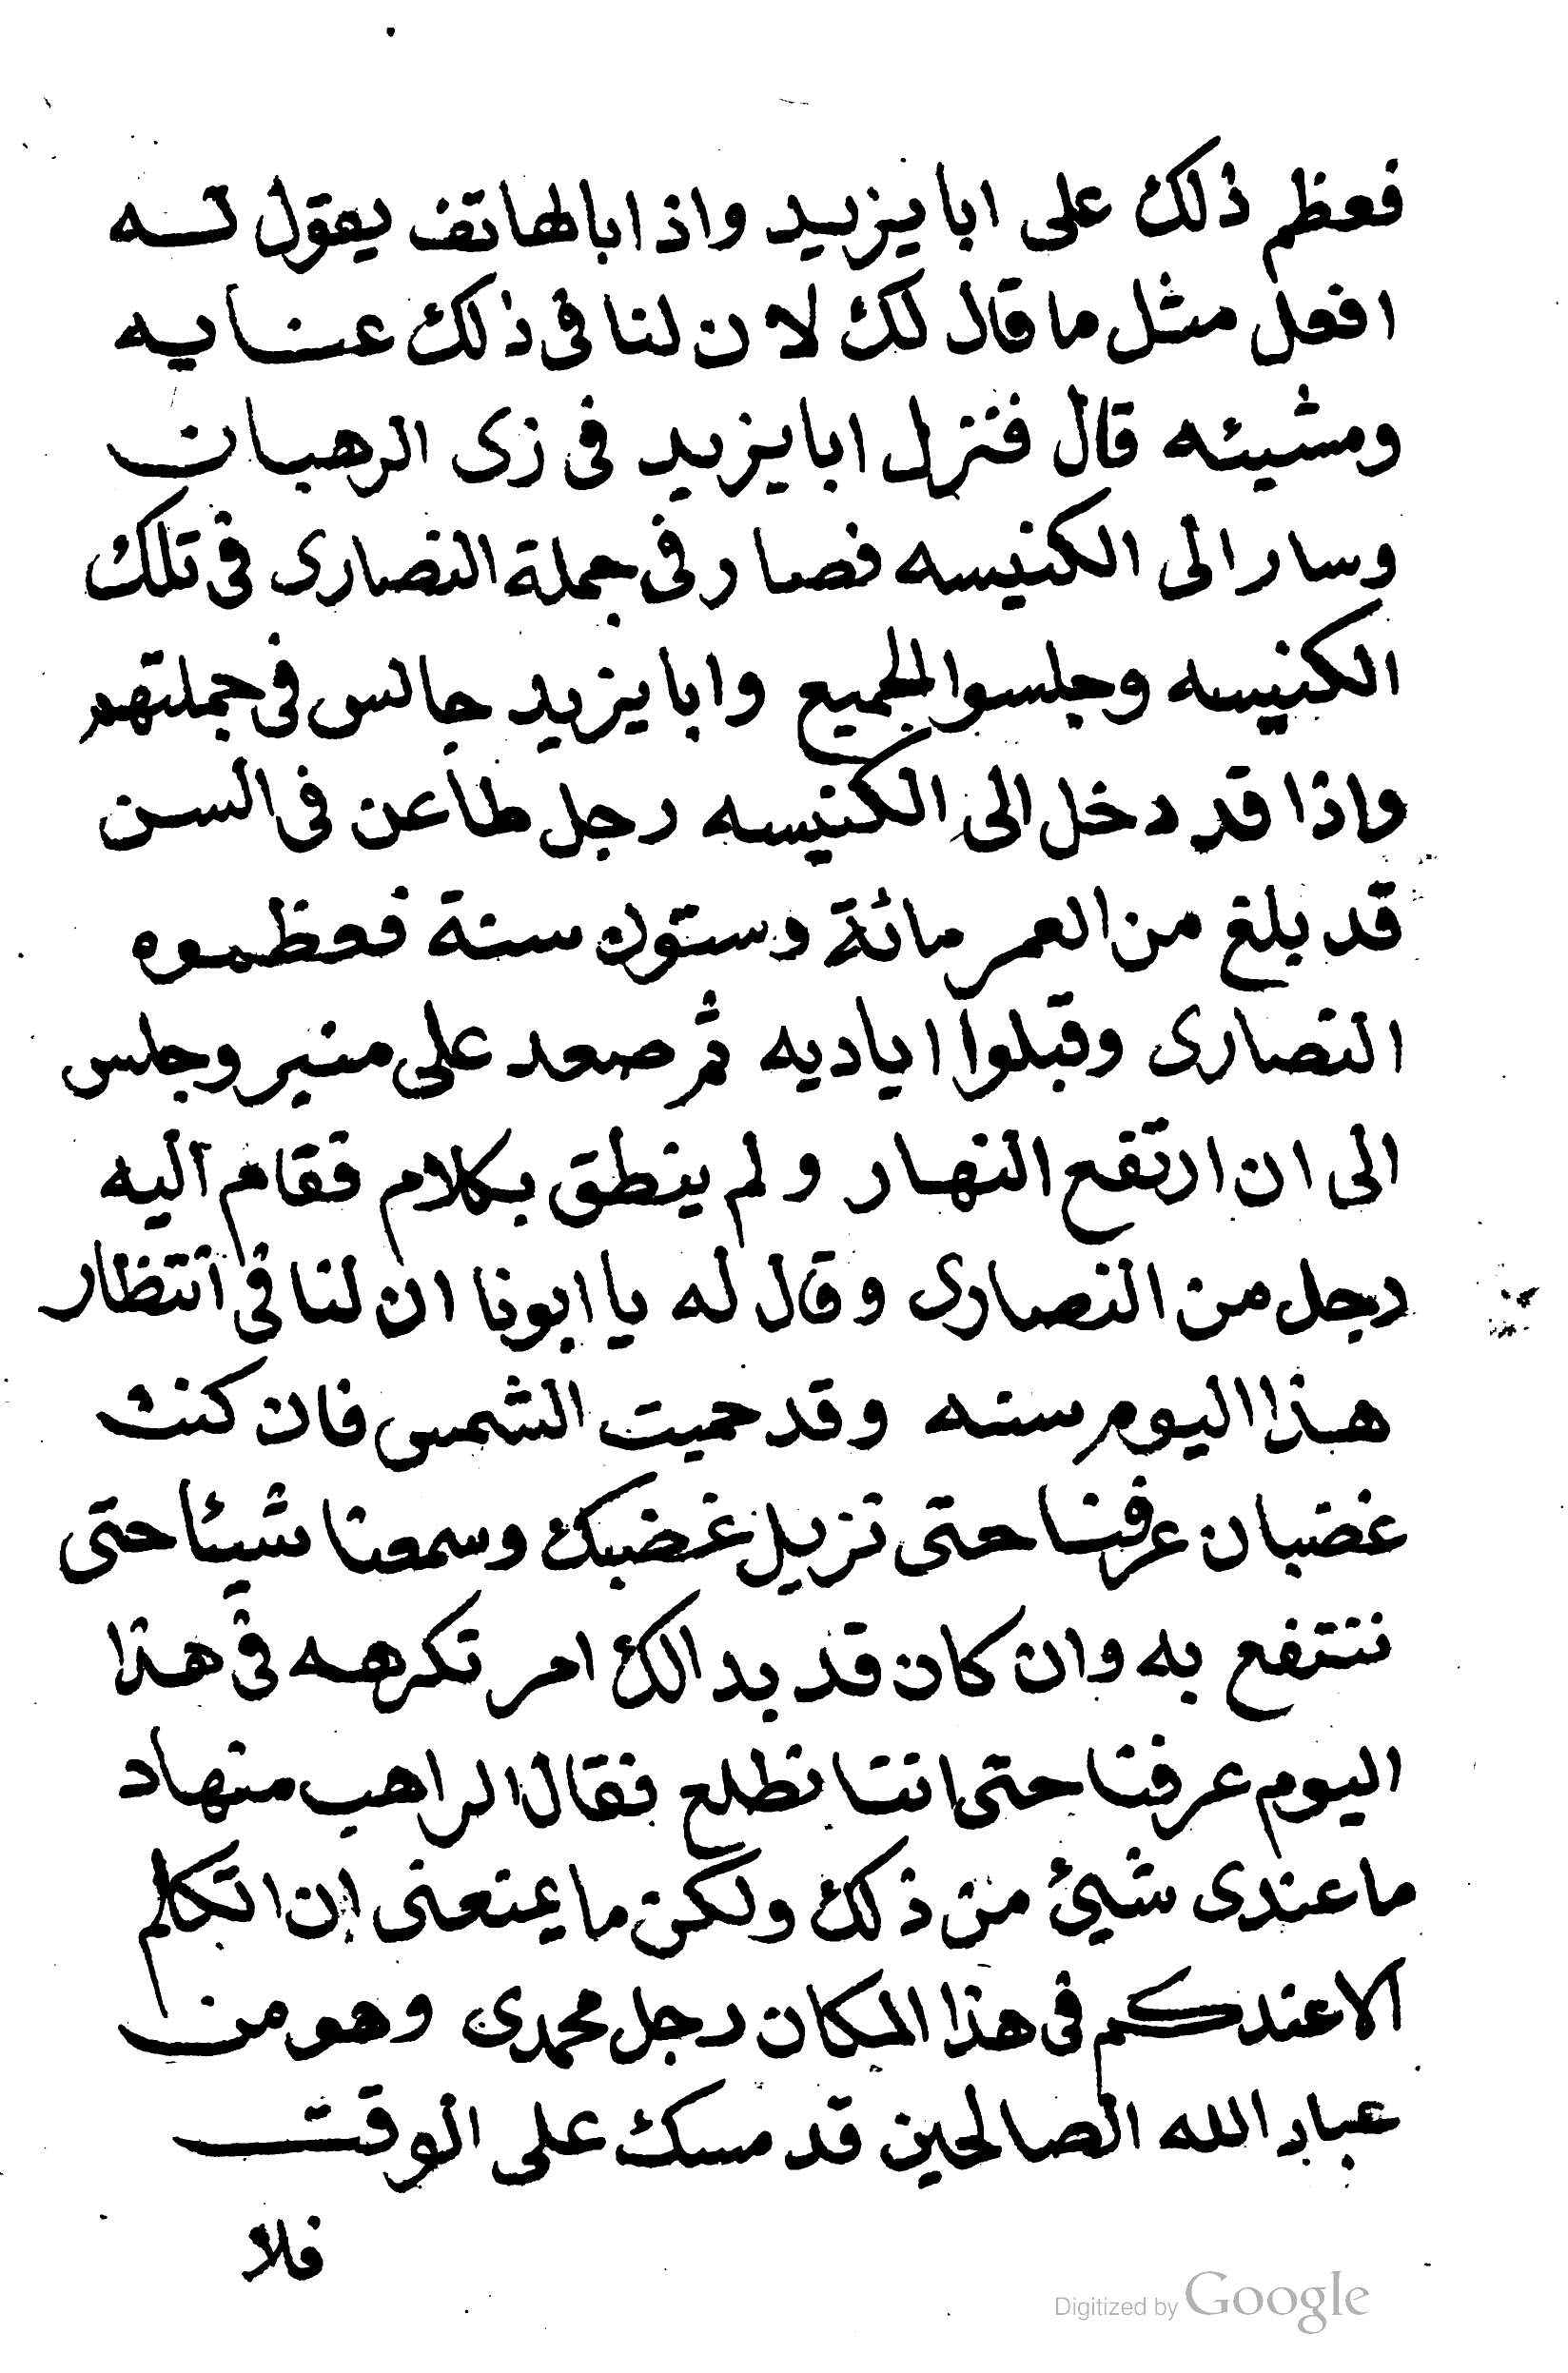 فعظم ذلك على ابا يزيد واذ ابالهاتف يقول له
افعل مثل ما قال لك لان لنا فى ذلك عنايه
ومشيئه قال فنزل ابا يزيد فى زى الرهبان
وسار الى الكنيسه فصار فى جملة النصارى فى تلك
الكنيسه وجلسوا الجميع وابا يزيد جالس فى جملتهم
واذا قد دخل الى الكنيسه رجل طاعن فى السن
قد بلغ من العمر مائة وستون سنة فعظموه
النصارى وقبلوا اياديه ثم صعد على منبر وجلس
الى ان ارتفع النهار ولم ينطق بكلام فقام اليه
رجل من النصارى وقال له يا ابونا ان لنا فى انتظار
هذا اليوم سنه وقد حميت الشمس فان كنت
غضبان عرفنا حتى نزيل غضبك وسمعنا شيئا حتى
ننتفع به وان كان قد بدالك امر تكرهه فى هذا
اليوم عرفنا حتى اننا نطلع فقال الراهب منهاد
ما عندى شيئ من ذلك ولكن ما يمنعنى ان اتكلم
الا عندكم فى هذا المكان رجل محمدى وهو من
عباد الله الصالحين قد مسك على الوقت
فلا
Digitized by Google